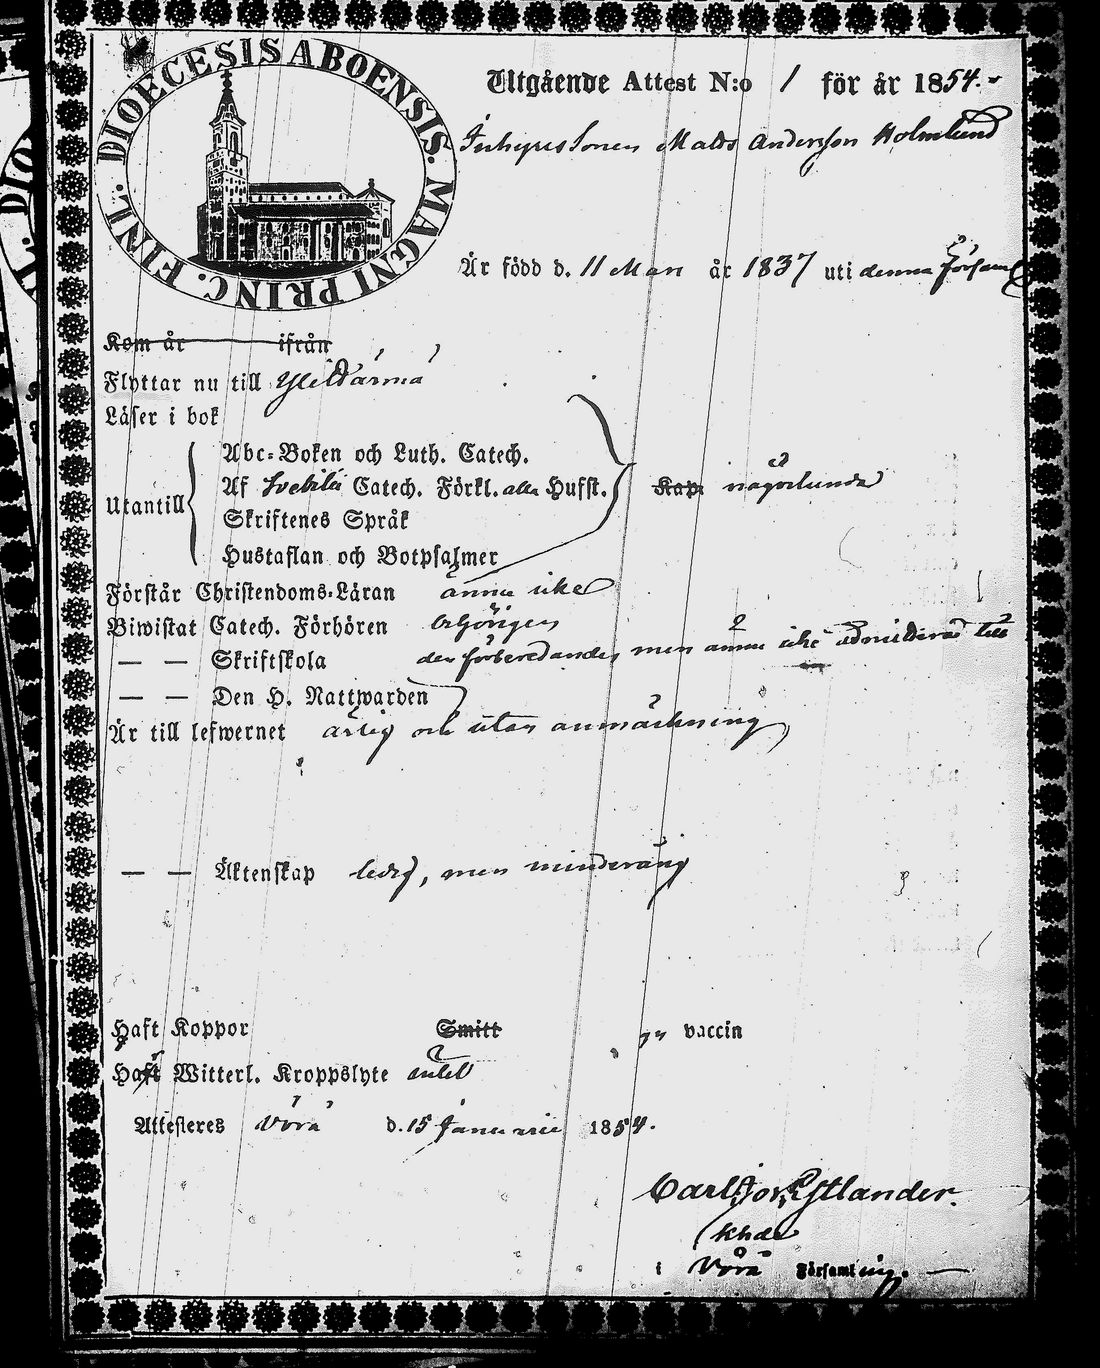 DIOECESIS ABOENSIS. MAGNI PRINC. FINL.
Utgående Attest N:o 1 för år 1854.
Inhyses Sonen Matts Andersson Holmlund
Är född d. 11 Mars år 1837 uti denna Församl
Kom år ifrån
Flyttar nu till Ylistärmä
Läser i bok
Abc-Boken och Luth. Catech.
Utantill
Af Svebilii Catech. Förkl. alla Hufst. Kap. någorlunda
Skriftenes Språk
Hustaflan och Botpsalmer
Förstår Christendoms-Läran ännu icke
Biwistat Catech. Förhören behörigen
— — Skriftskola den förberedande, men ännu icke admitterad till
— — Den H. Nattwarden
Är till lefwernet ärlig och utan anmärkning
— — Äktenskap ledig, men minderårig
Haft Koppor Smitt gn vaccin
Haft Witterl. Kroppslyte intet
Attesteres Vörå d. 15 Januarii 1854.
Carl Jon. Estlander
Khde
i Vörå Församling.